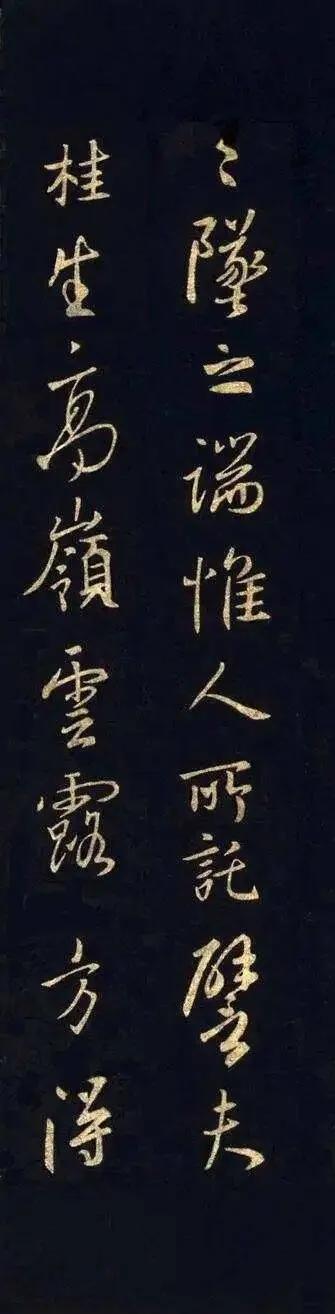 〻墜之端惟人所託譬夫
桂生高嶺雲露方得